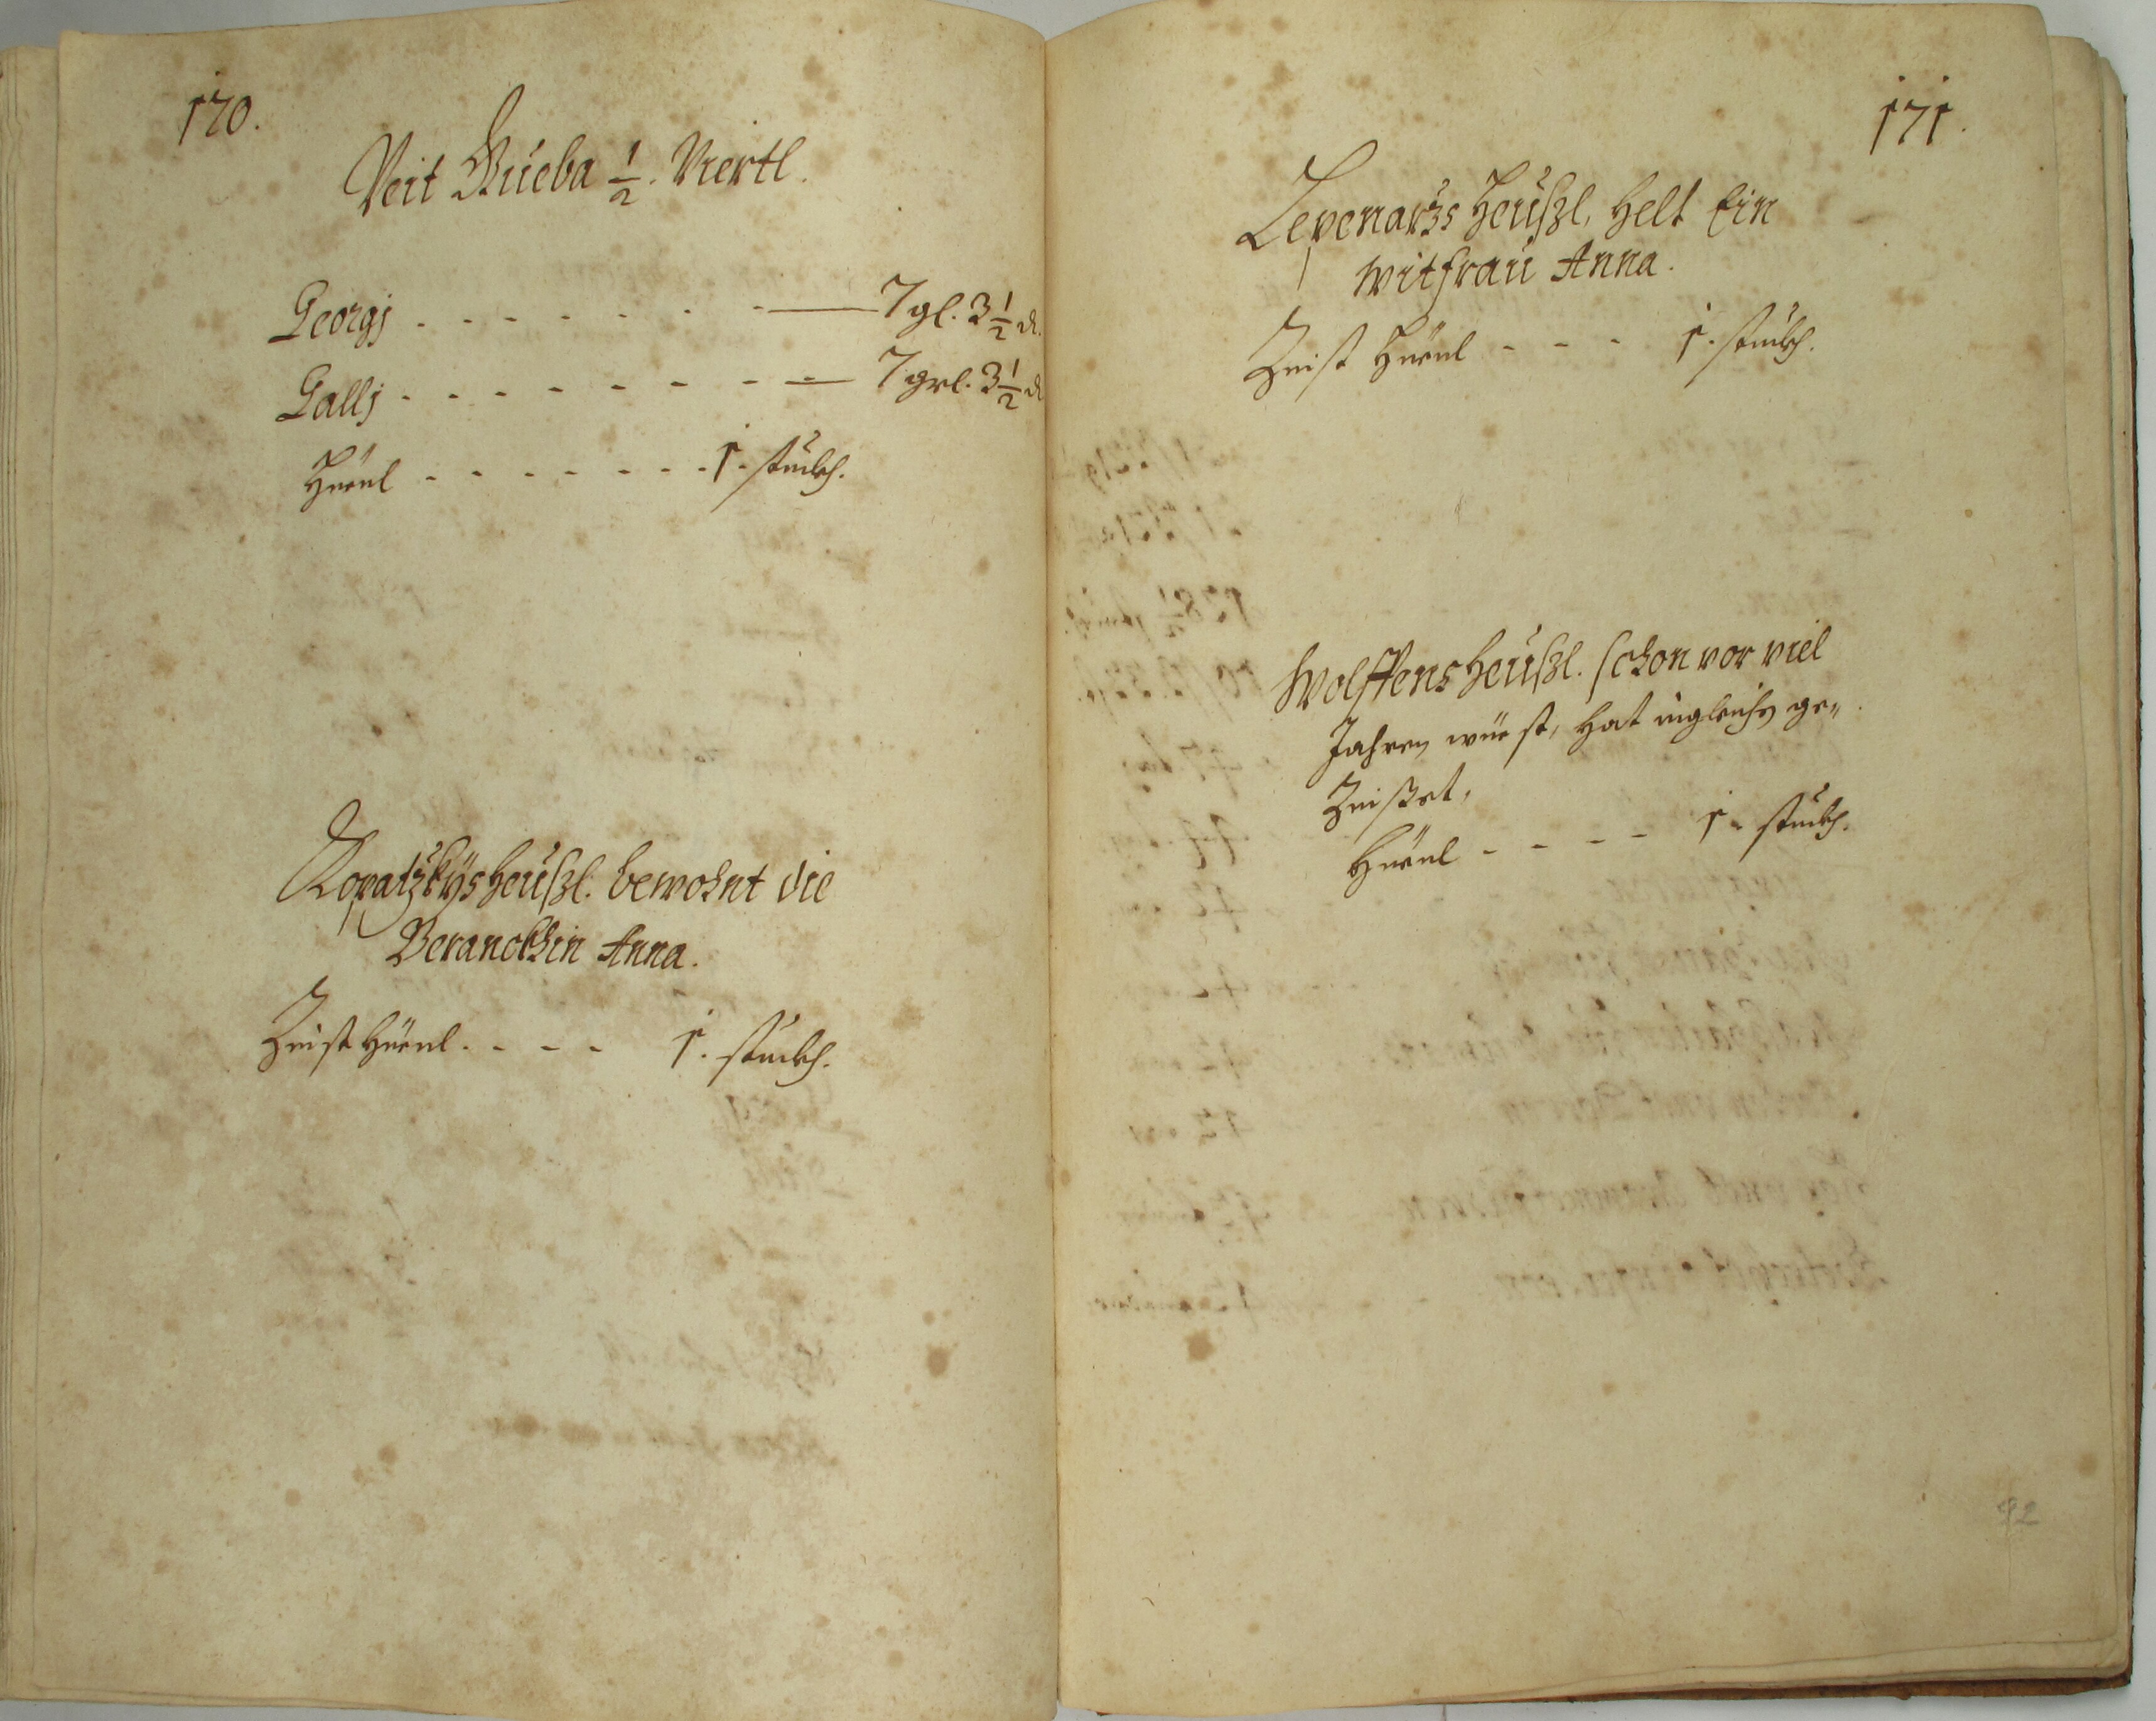 170.
Veit Bueba 1/2. Viertl.
Georgj - - - - - - - 7 gl. 3 1/2 d.
Gallj - - - - - - - - 7 grl. 3 1/2 d
Hüenl - - - - - - - 1. stuckh.
Kopatzkÿs Heußl. bewohnt die
Beranckhin Anna.
Zinst Hüenl. - - - 1. stuckh.
171.
Lepenarzs Heußl, helt Ein
Witfrau Anna.
Zinst Hüenl - - - 1. stuckh.
Wolffens Heußl. schon vor viel
Jahren wüest, hat ingleichen ge„
Zinßet,
Hüenl - - - - 1. stuckh.
92